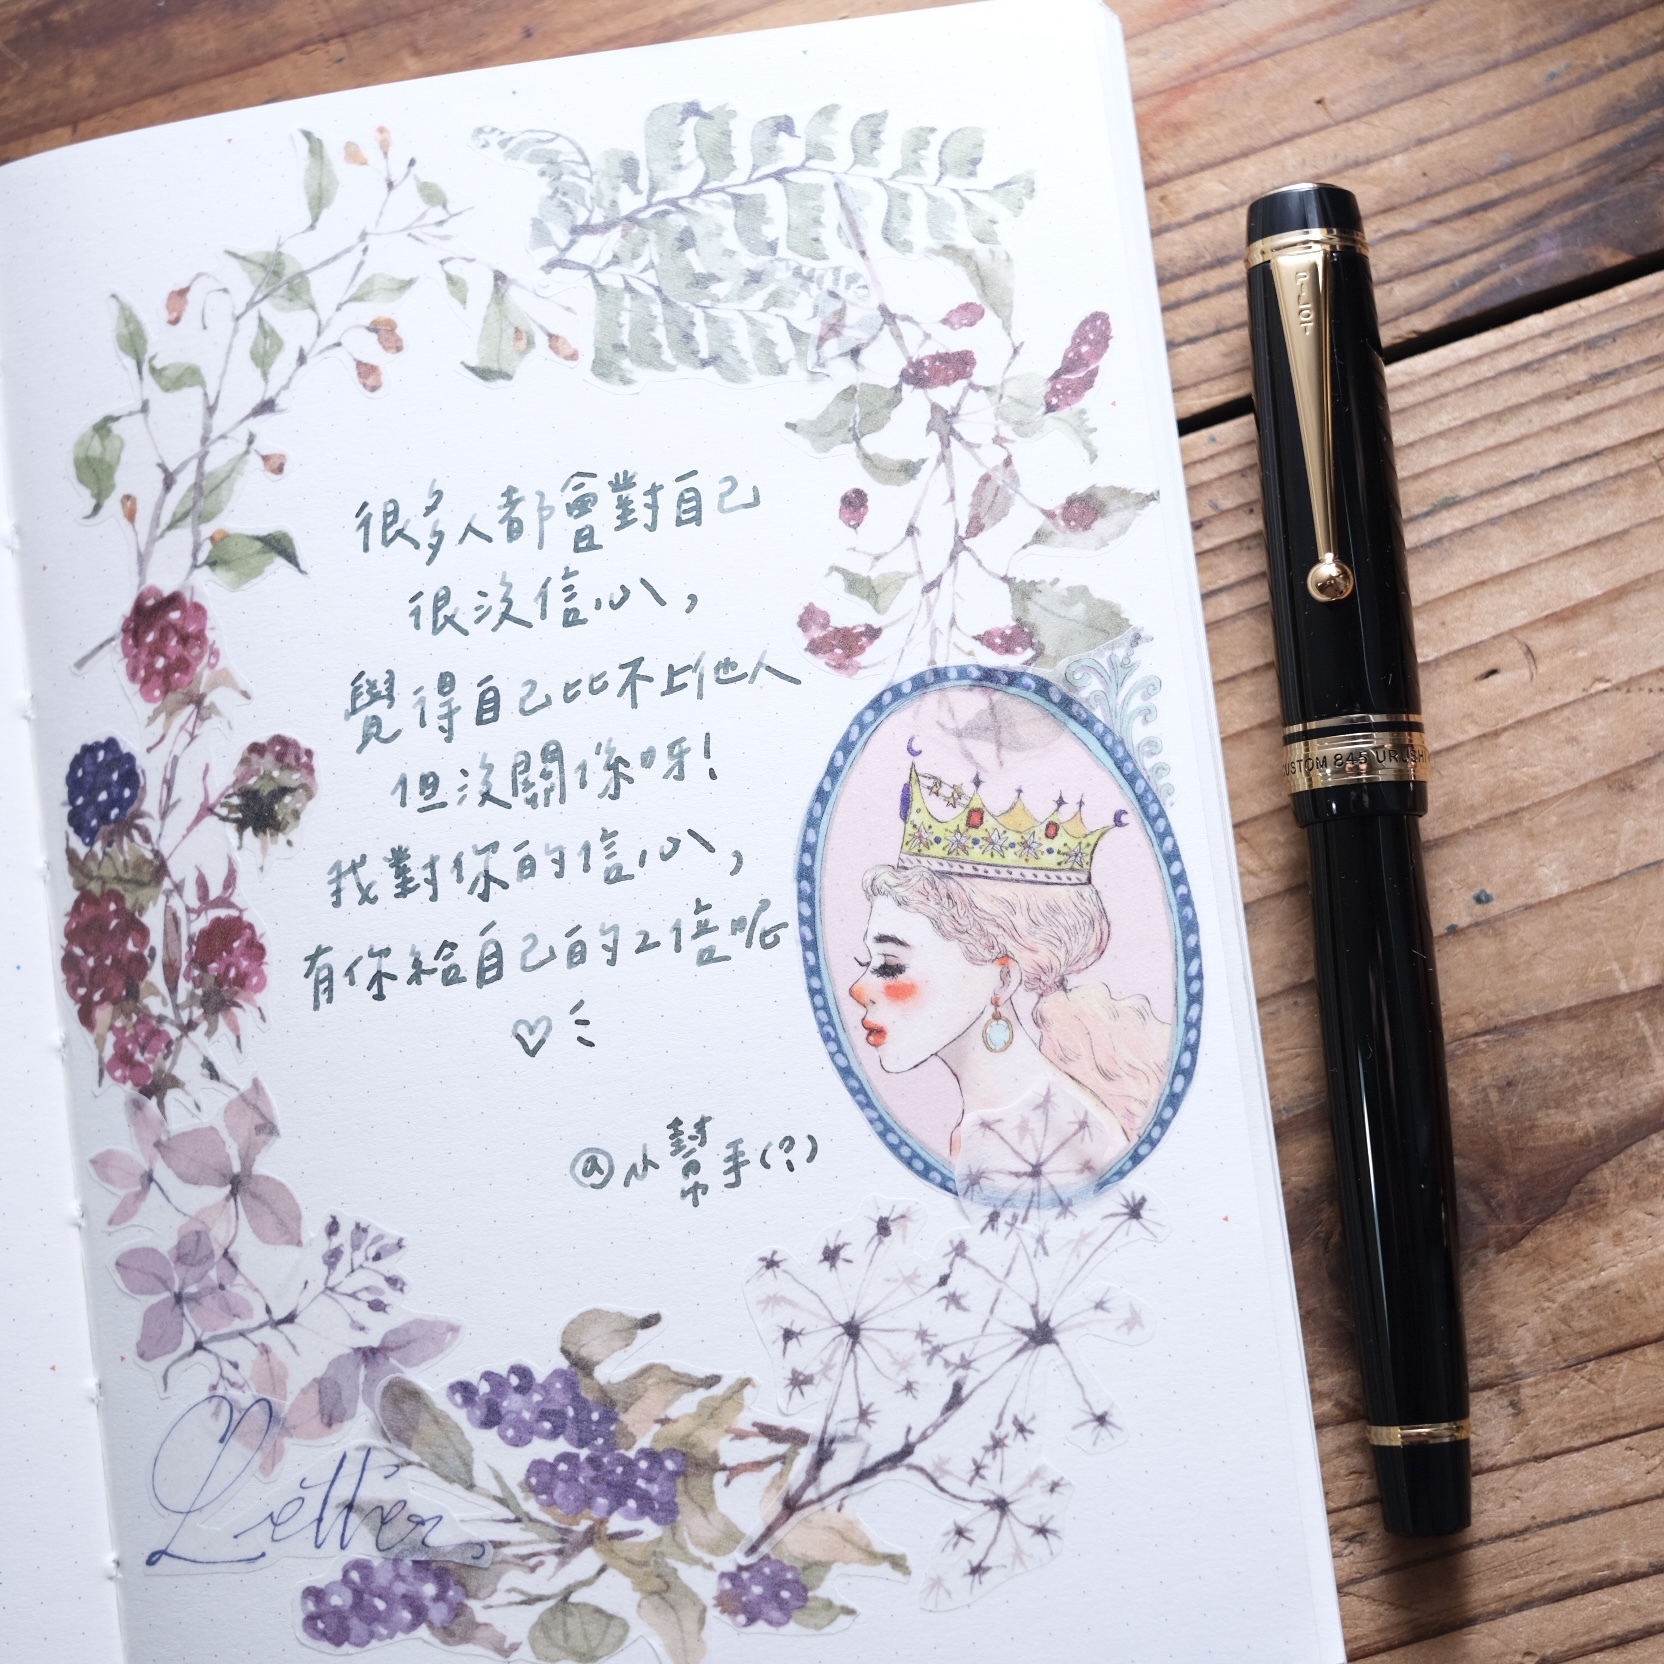 很多人都會對自己
很沒信心，
覺得自己比不上他人
但沒關係呀！
我對你的信心，
有你給自己的2倍呢
@小幫手(?)
Letter
PILOT
CUSTOM 845 URUSHI